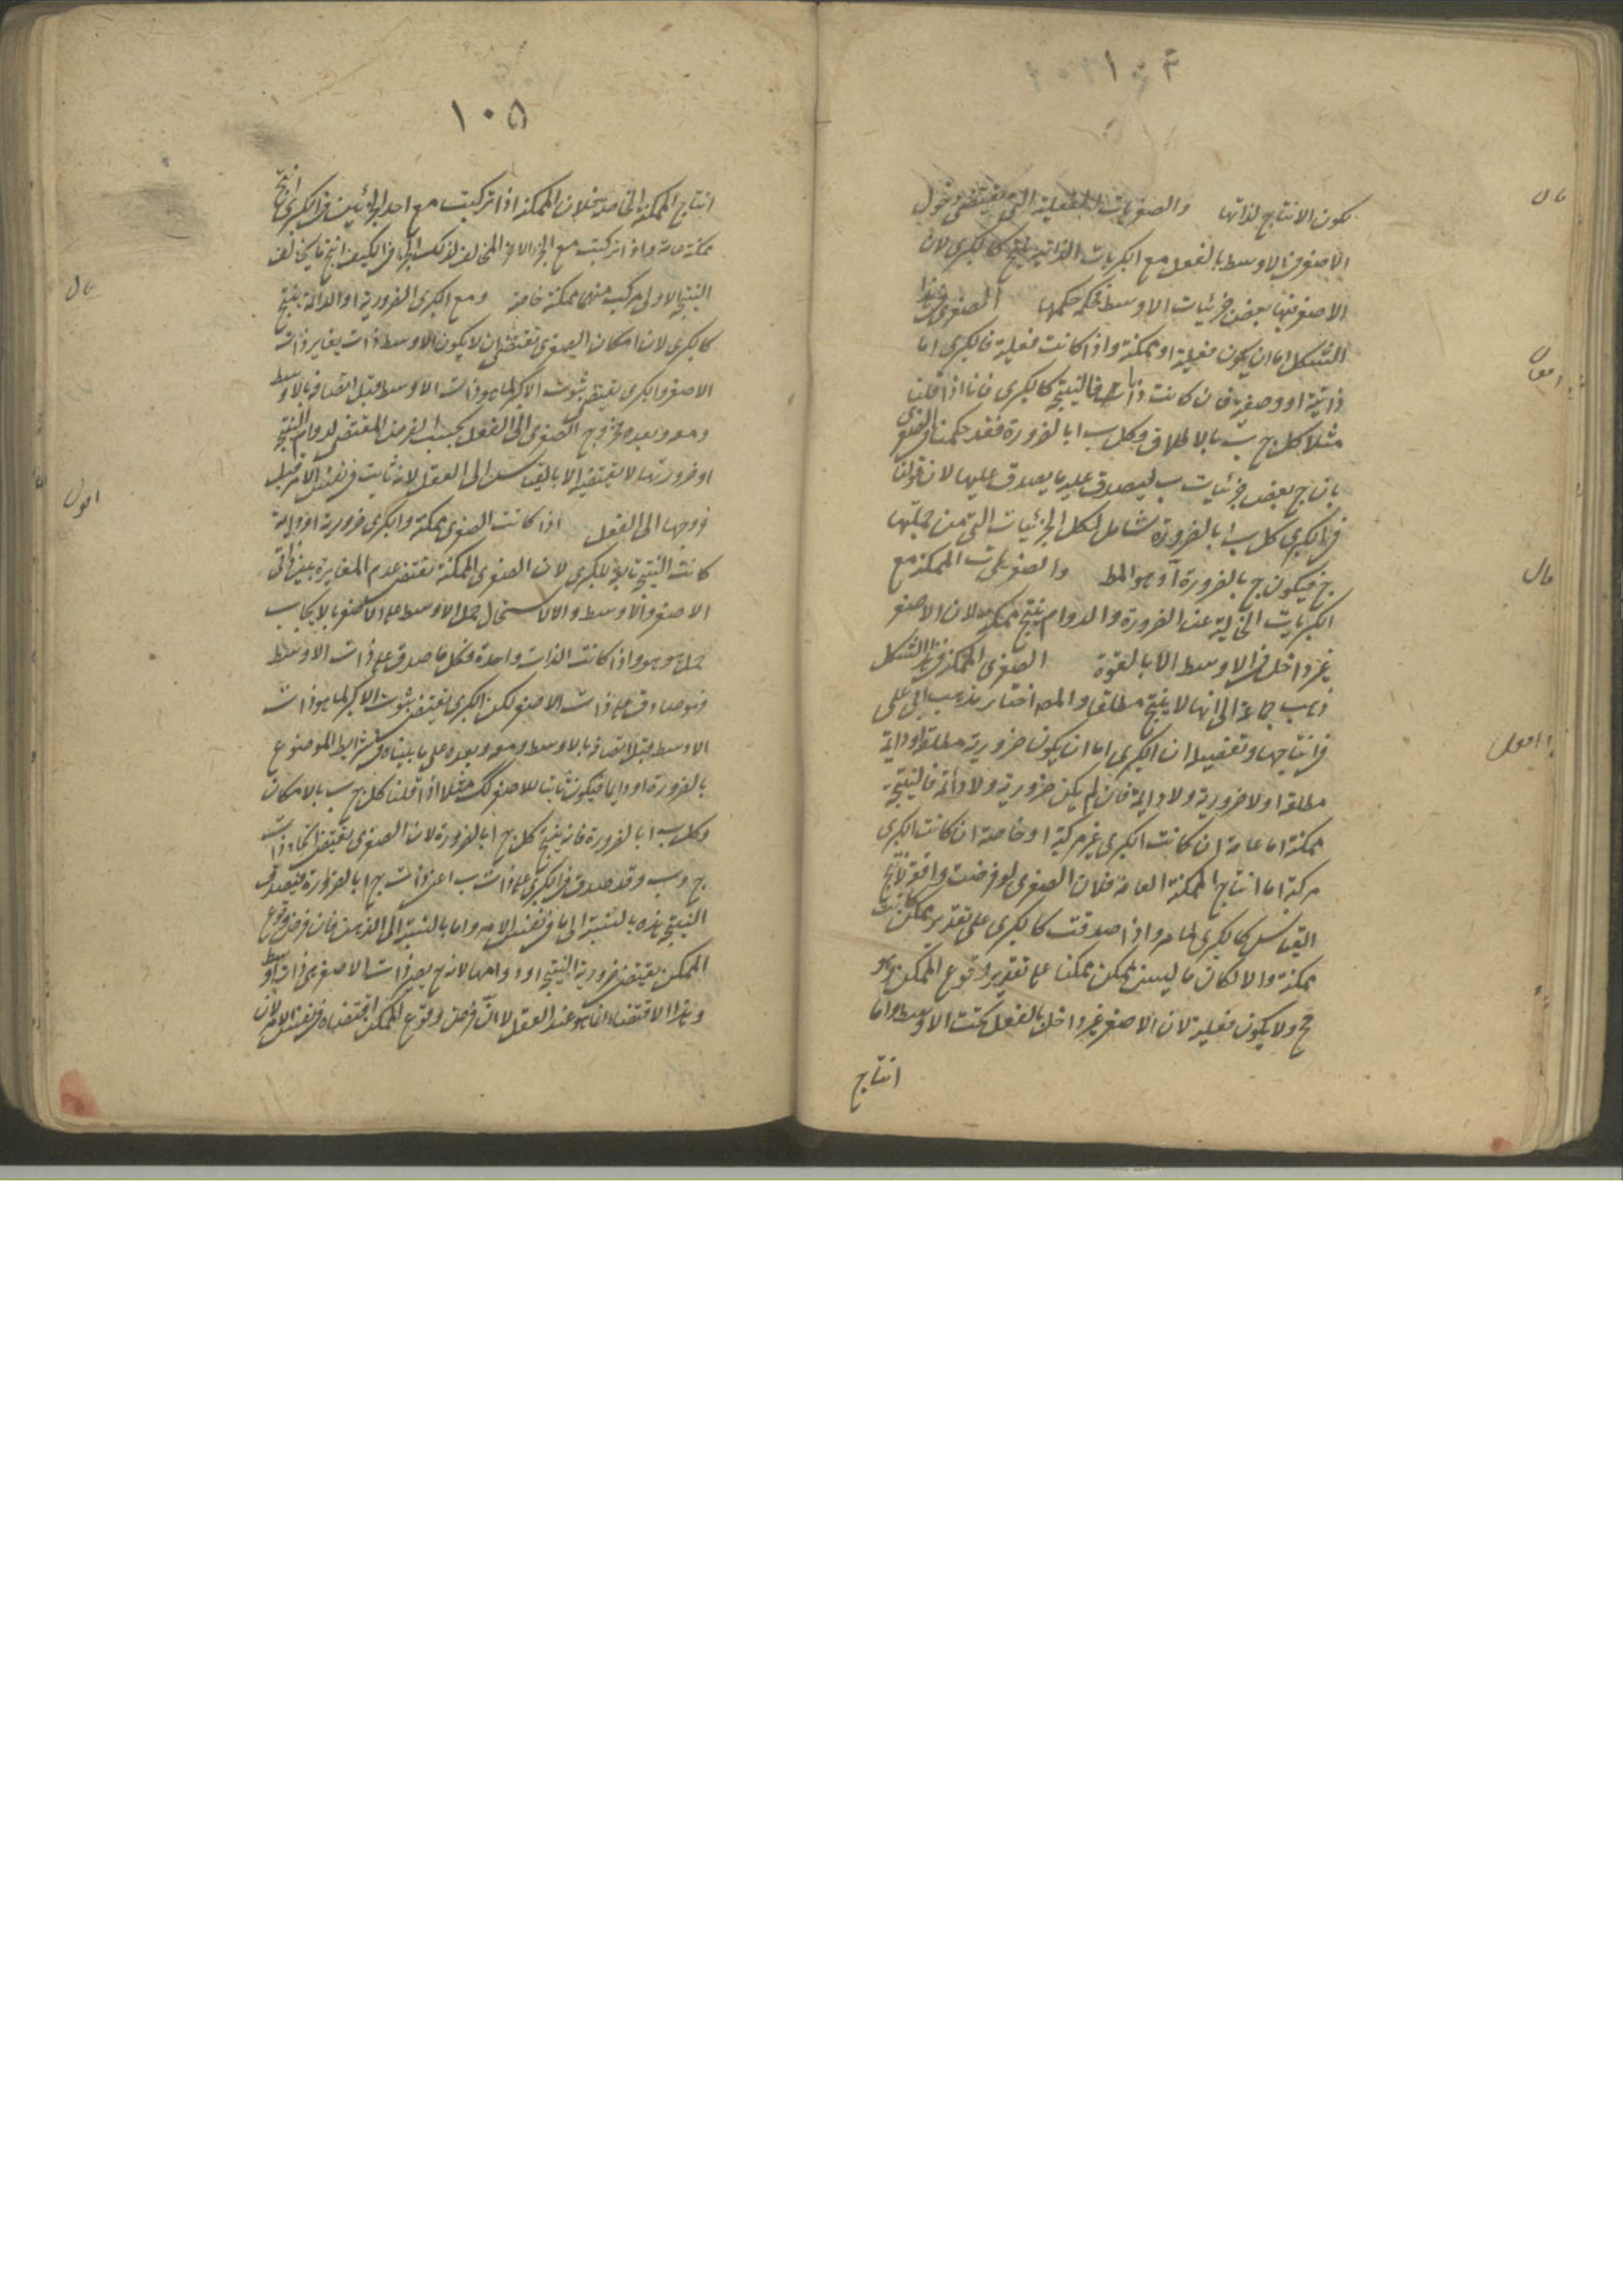 ١٠٤
يكون الانتاج لذاتها والصغريات الفعلية التى تقتضى دخول
الاصغر فى الاوسط بالفعل مع الكبريات الذاتية ينتج كالكبرى لان
الاصغر فيها بعض جزئيات الاوسط فحكمه حكمها الصغرى فى هذا
الشكل اما ان يكون فعلية او ممكنة واذا كانت فعلية فالكبرى اما
ذاتية او وصفية فان كانت ذاتية فالنتيجة كالكبرى فانا اذا قلنا
مثلا كل ج ب بالاطلاق وكل ب ا بالضرورة فقد حكمنا فى الصغرى
بان ج بعض جزئيات ب ليصدق عليه ما يصدق عليها لان قولنا
فى الكبرى كل ب ا بالضرورة شامل لكل الجزئيات التى من جملتها
ج فيكون ج بالضرورة ا وهو المط والصغريات الممكنة مع
الكبريات الخالية عن الضرورة والدوام ينتج ممكنة لان الاصغر
غير داخل فى الاوسط الا بالقوة الصغرى الممكنة فى هذا الشكل
ذهب جماعة الى انها لا ينتج مطلقا والمص اختار مذهب ابى على
فى انتاجها وتفصيله ان الكبرى اما ان يكون ضرورية مطلقة او دائمة
مطلقة او لا ضرورية ولا دائمة فان لم يكن ضرورية ولا دائمة فالنتيجة
ممكنة اما عامة ان كانت الكبرى غير مركبة او خاصة ان كانت الكبرى
مركبة اما انتاج الممكنة العامة فلان الصغرى لو فرضت واقعة لانتج
القياس كالكبرى لما مر واذا صدقت كالكبرى على تقدير ممكن كانت
ممكنة والا لكان ما ليس بممكن ممكنا على تقدير وقوع الممكن وهو
مح ولا يكون فعلية لان الاصغر غير داخل بالفعل تحت الاوسط واما
انتاج
قال
اقول
قال
اقول
١٠٥
انتاج الممكنة الخاصة فلان الممكنة اذا تركبت مع احد الجزئين فى الكبرى انتج
ممكنة عامة واذا تركبت مع الجزء الاخر المخالف لذلك الجزء فى الكيف انتج ما يخالف
النتيجة الاولى فيركب منهما ممكنة خاصة ومع الكبرى الضرورية او الدائمة ينتج
كالكبرى لان امكان الصغرى تقتضى ان لا يكون الاوسط ذات يغاير ذات
الاصغر والكبرى يقتضى ثبوت الاكبر لما هو ذات الاوسط قبل اتصافه بالاوسط
ومعه وبعده فخروج الصغرى الى الفعل بحسب الفرض المقتضى لدوام النتيجة
او ضرورتها لا يقتضيه الا بالقياس الى العقل لانه ثابت فى نفس الامر قبل
خروجها الى الفعل اذا كانت الصغرى ممكنة والكبرى ضرورية او دائمة
كانت النتيجة تابعة للكبرى لان الصغرى الممكنة تقتضى عدم المغايرة بين ذاتى
الاصغر والاوسط والا لاستحال حمل الاوسط على الاصغر بالايجاب
حمل هو هو واذا كانت الذات واحدة فكل ما صدق على ذات الاوسط
فهو صادق على ذات الاصغر لكن الكبرى يقتضى ثبوت الاكبر لما هو ذات
الاوسط قبل اتصافه بالاوسط ومعه وبعده على ما بيناه فى شرايط الموضوع
بالضرورة او دايما فيكون ثابتا للاصغر كك مثلا اذا قلنا كل ج ب بالامكان
وكل ب ا بالضرورة فانه ينتج كل ج ا بالضرورة لان الصغرى يقتضى اتحاد ذات
ج وب وقد صدق فى الكبرى على ذات ب اعنى ذات ج ا بالضرورة فيصدق
النتيجة هذه بالنسبة الى ما فى نفس الامر واما بالنسبة الى الذهن فان فرض وقوع
الممكن يقتضى ضرورية النتيجة او دوامها لانه ح يصير ذات الاصغر هى ذات الاوسط
وهذا الاقتضاء انما هو عند العقل لا ان فرض وقوع الممكن اقتضاه فى نفس الامر لان
قال
اقول